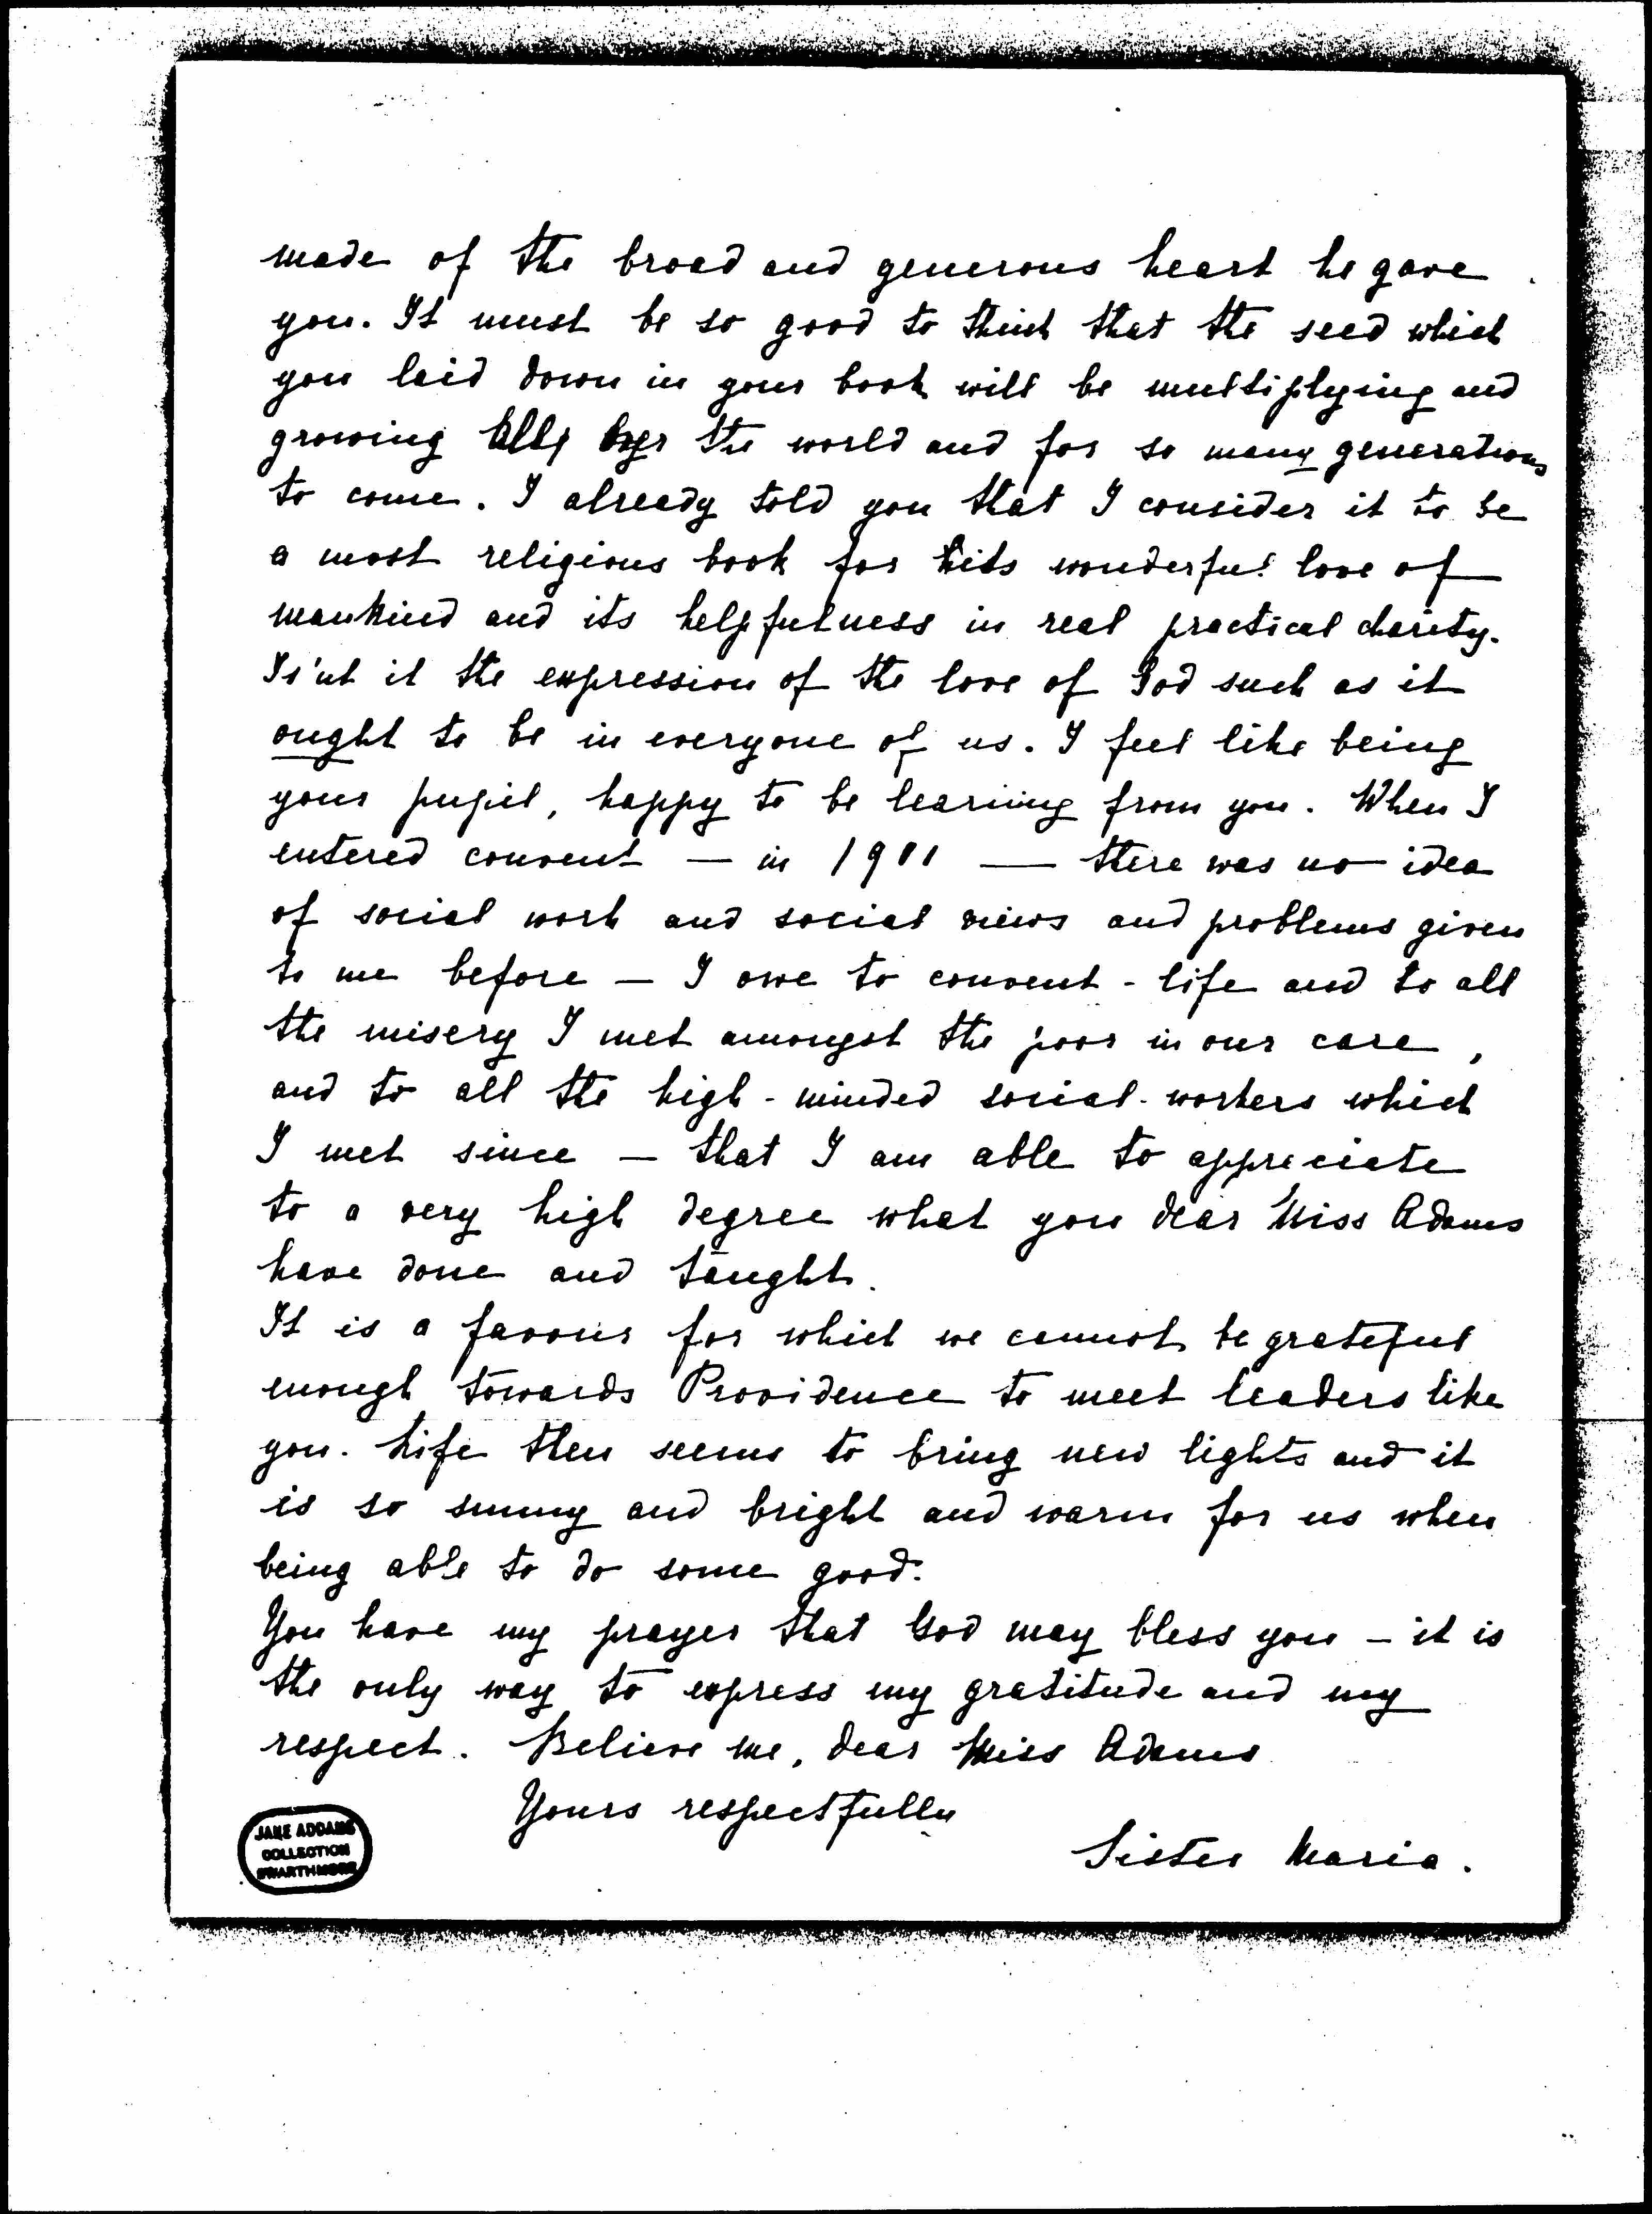 made of the broad and generous heart he gave
you. It must be so good to think that the seed which
you laid down in your book will be multiplying and
growing all over the world and for so many generations
to come. I already told you that I consider it to be
a most religious book for its wonderful love of
mankind and its helpfulness in real practical charity.
Is'nt it the expression of the love of God such as it
ought to be in everyone of us. I feel like being
your pupil, happy to be learning from you. When I
entered convent — in 1911 — there was no idea
of social work and social views and problems given
to me before — I owe to convent-life and to all
the misery I met amongst the poor in our care,
and to all the high-minded social-workers which
I met since — that I am able to appreciate
to a very high degree what you dear Miss Adams
have done and taught.
It is a favour for which we cannot be grateful
enough towards Providence to meet leaders like
you. Life then seems to bring new lights and it
is so sunny and bright and warm for us when
being able to do some good.
You have my prayer that God may bless you — it is
the only way to express my gratitude and my
respect. Believe me, dear Miss Adams
Yours respectfully
Sister Maria.
JANE ADDAMS
COLLECTION
SWARTHMORE